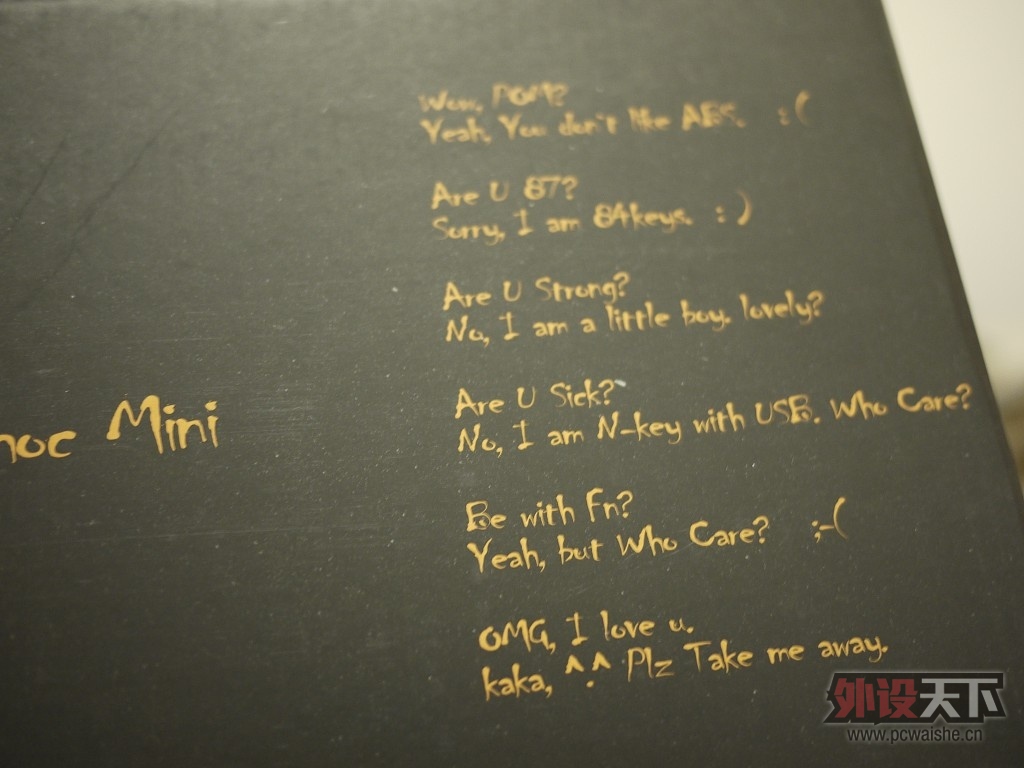 Wow, POM?
Yeah, You don't like ABS. :(
Are U 87?
Sorry, I am 84keys. :)
Are U Strong?
No, I am a little boy. lovely?
Are U Sick?
No, I am N-key with USB. Who Care?
Be with Fn?
Yeah, but Who Care? ;-(
OMG, I love u.
kaka, ^.^ Plz Take me away.
noc Mini
外设天下
www.pcwaishe.cn